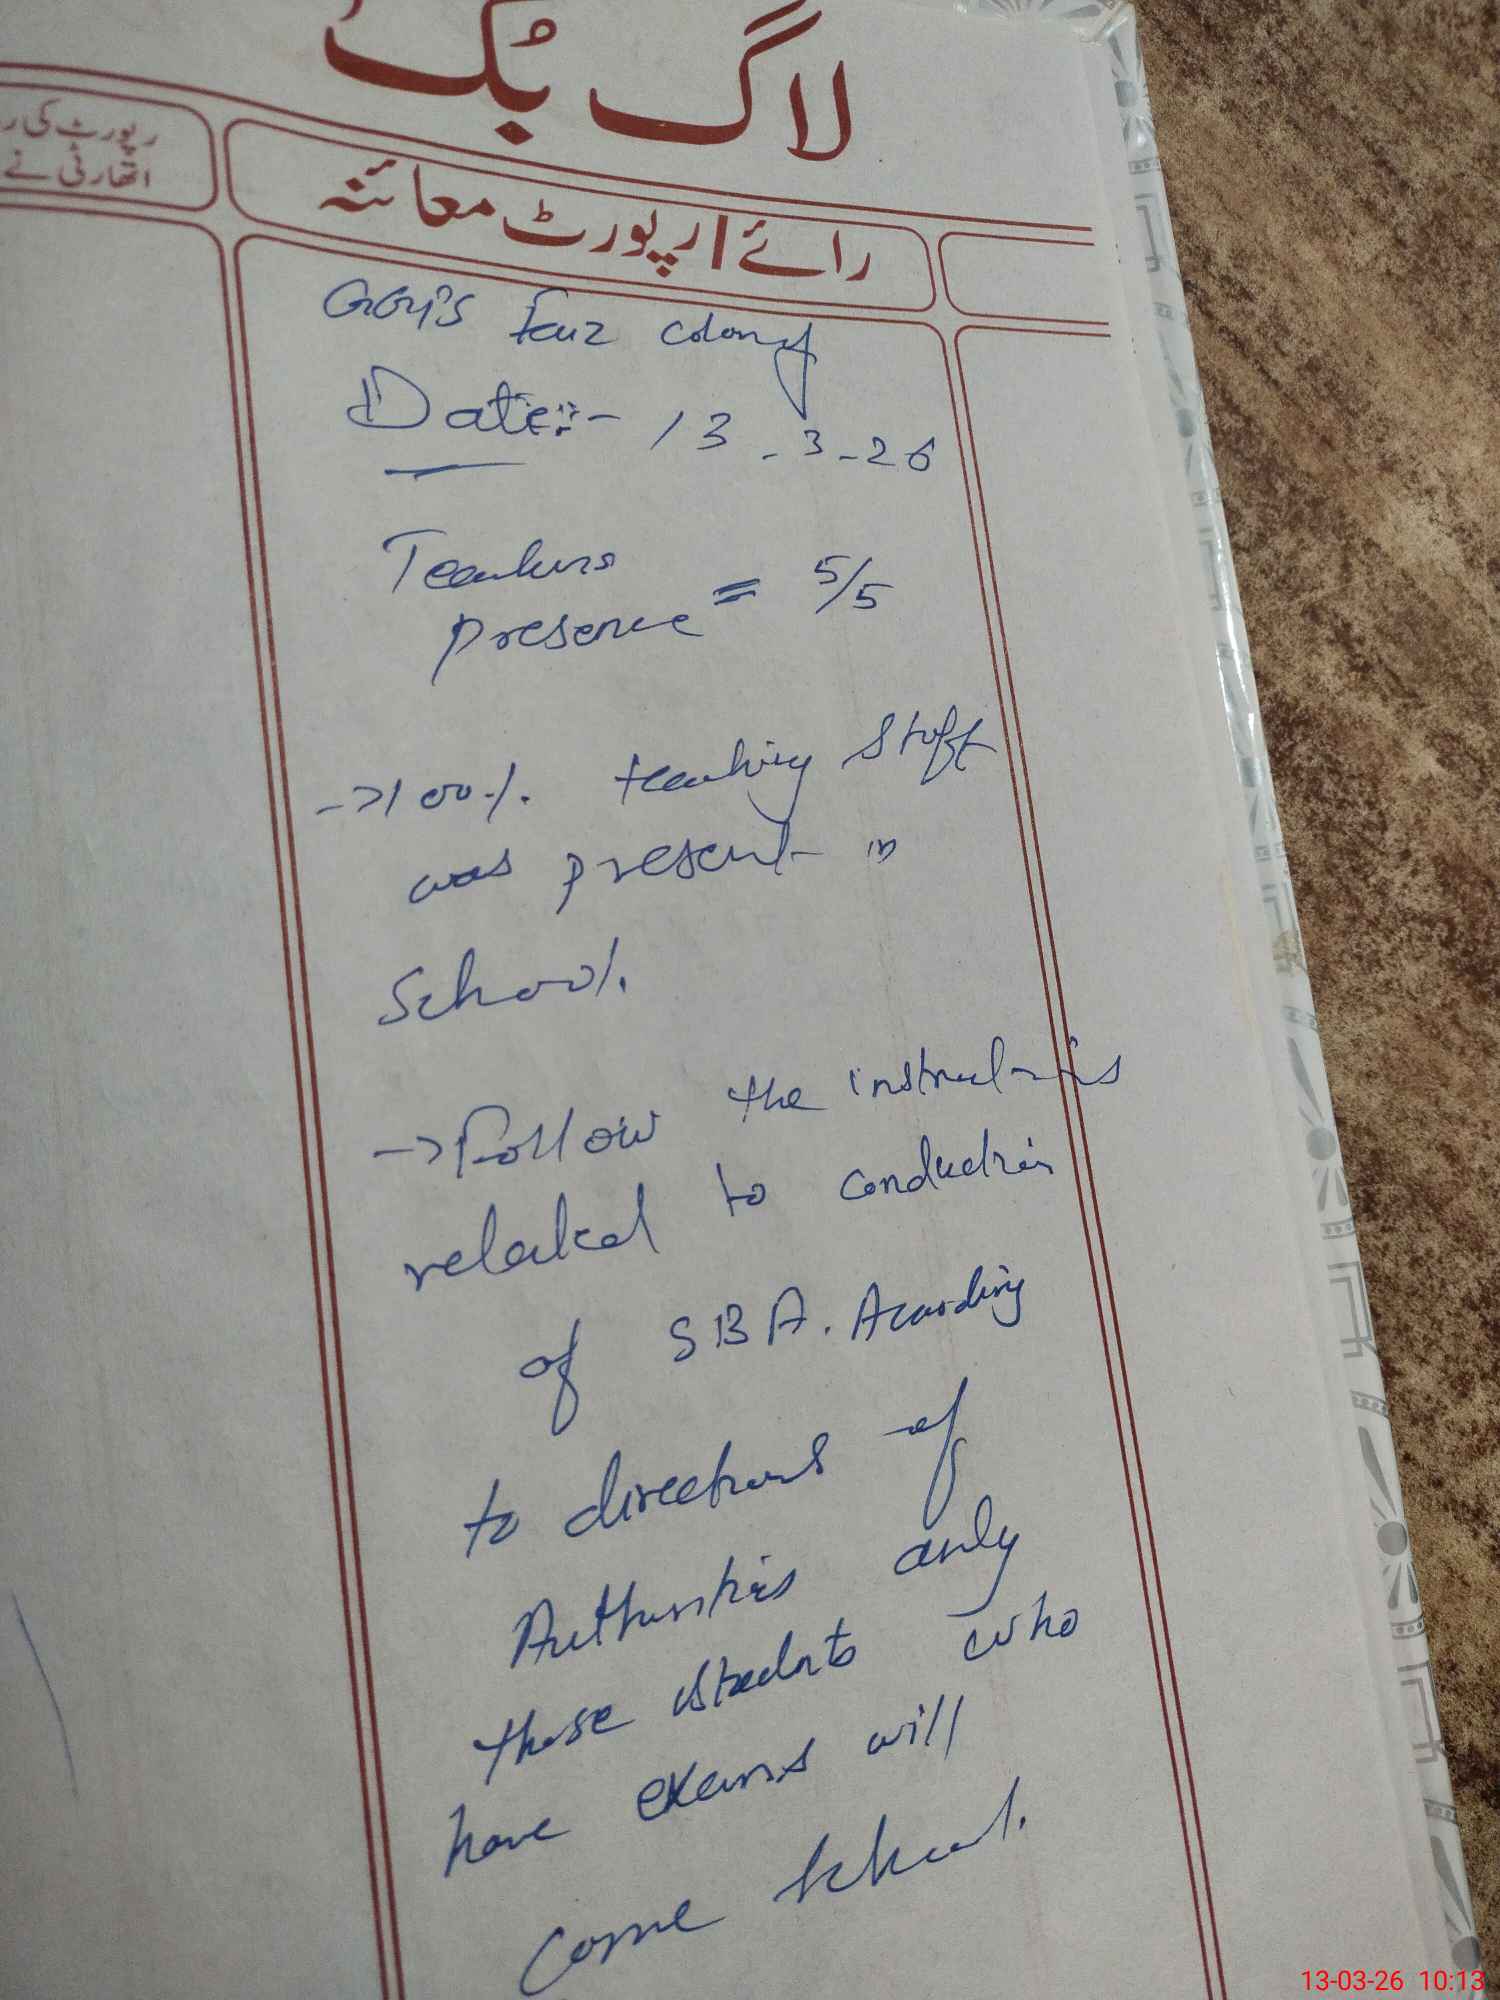 لاگ بُک
رپورٹ کی
اتھارٹی نے
رائے / رپورٹ معائنہ
Faiz colony
Date:- 13-3-26
Teachers
presence = 5/5
→ 100%. teaching staff
was present in
School.
→ Follow the instructions
related to conduction
of SBA. According
to directions of
Authorities only
those students who
have exams will
come school.
13-03-26 10:13